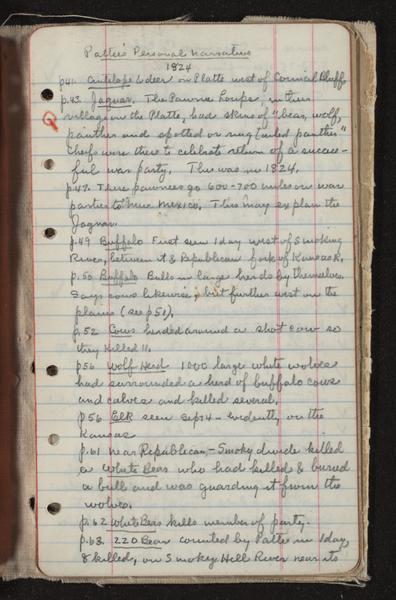 Pattie's Personal Narrative
1824
p41. Antelope & deer on Platte west of Council Bluff
p.43. Jaguar. The Pawnee Loups, in their
village on the Platte, had skins of "bear, wolf,
panther and spotted or ring tailed panther"
Chefs were there to celebrate return of a success-
ful war party. This was in 1824.
p.47. These pawnees go 600-700 miles on war
parties to New Mexico. This may explain the
Jaguar.
p.49 Buffalo First seen 1 day west of Smoking
River, between it & Republican fork of Kansas R.
p.50 Buffalo Bulls in large herds by themselves.
Says cows likewise; but further west on the
plains (see p51).
p.52 Cows herded around a shot cow so
they killed 11.
p56 Wolf Herd 1000 large white wolves
had surrounded a herd of buffalo cows
and calves and killed several.
p56 Elk seen Sept 4 - evidently on the
Kansas
p.61 near Republican - Smoky divide killed
a White Bear who had killed & buried
a bull and was guarding it from the
wolves.
p.62 White Bear kills member of party.
p.63. 220 Bear counted by Pattie in 1 day,
8 killed, on Smokey Hill River near its